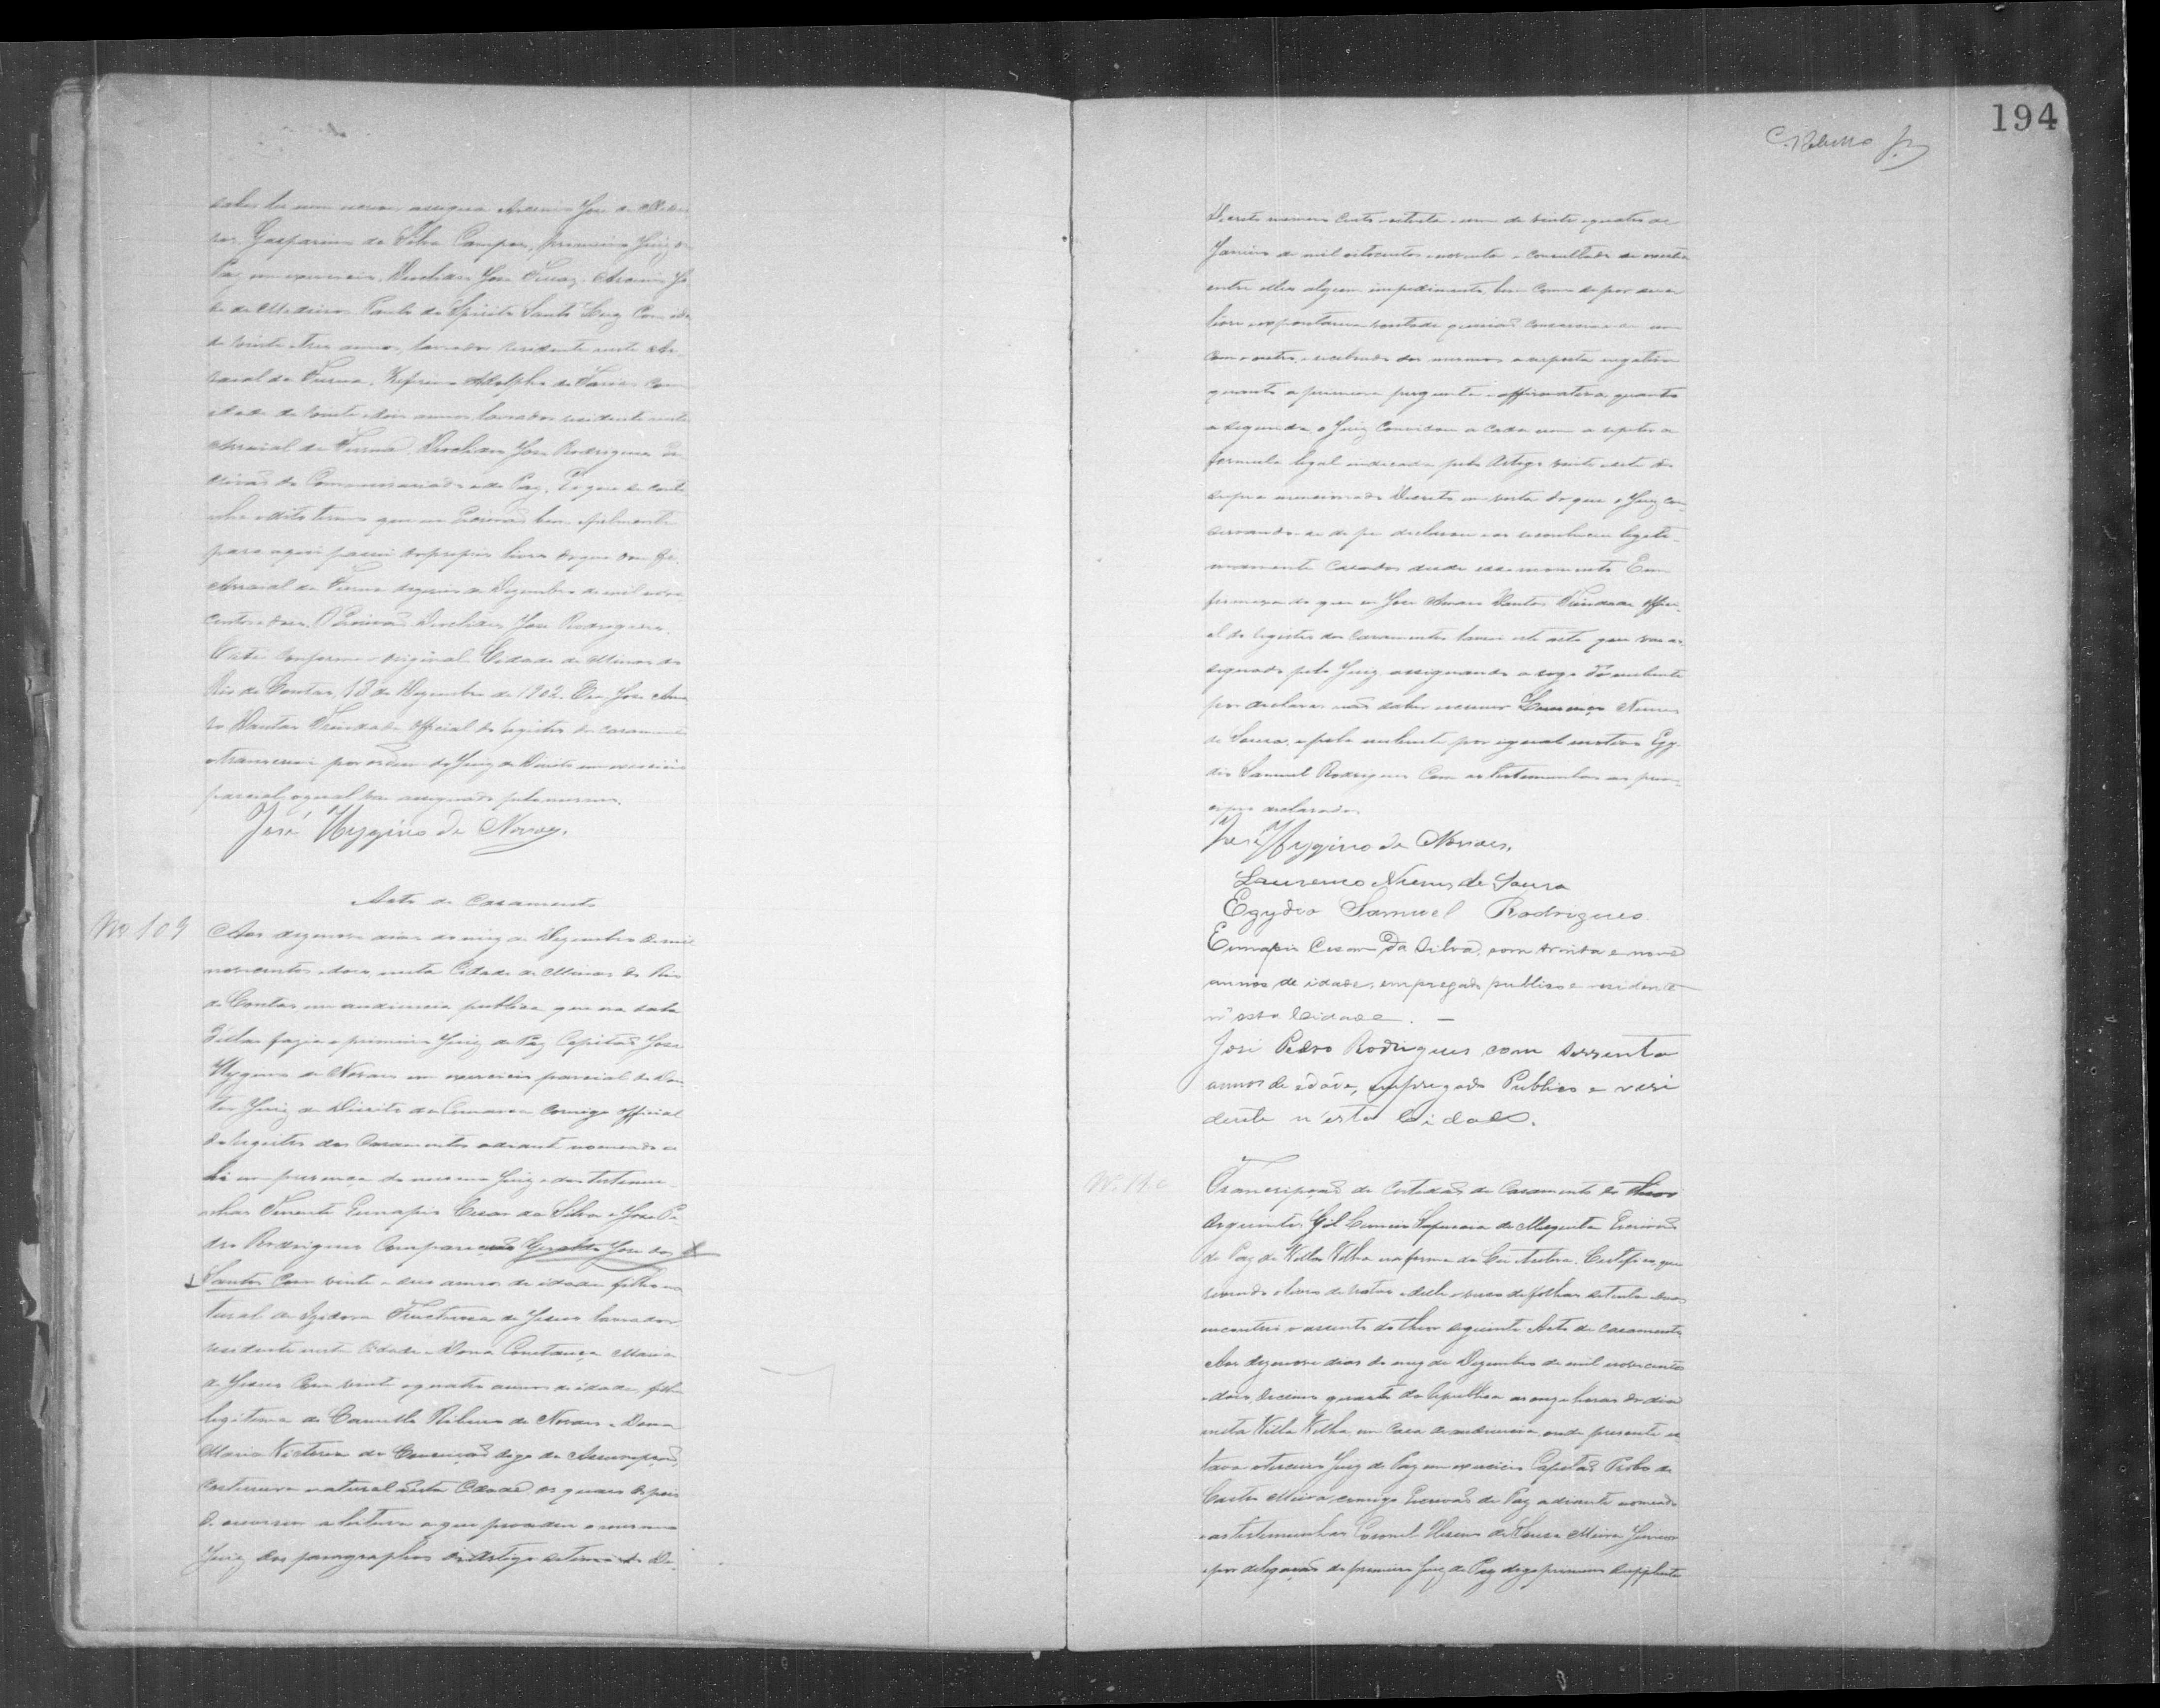 saber ler nem escrever assigna Arsenio José de Medei
ros. Gasparino da Silva Campos, primeiro Juiz de
Paz em exercicio, Deoclides José Ferraz, Arsenio Jo
sé de Medeiros Paulo do Spirito Santo Cruz Com idade
de vinte e tres annos, lavrador residente neste Ar
raial da Furna, Adolpho de Farias Com
idade de vinte e dois annos lavrador residente neste
Arraial da Furna, Deoclides José Rodrigues Es
crivão do Commissariado e de Paz. É o que se conti
nha e dito termo que eu Escrivão bem e fielmente
para aqui passei do proprio livro do que dou fé.
Arraial da Furna de Dezembro de mil nove
centos e dois. O Escrivão Deoclides José Rodrigues.
Está conforme o original. Cidade de Minas do
Rio de Contas, 18 de Dezembro de 1902. Eu, José Ama
ro Dantas Trindade official do registro de casamentos
o transcrevi por ordem do Juiz de Direito em exercicio
parcial o qual vae assignado pelo mesmo.
José Hygino de Novaes.
Acto de Casamento
Nº 109
Aos dezenove dias do mez de Dezembro de mil
novecentos e dois, nesta Cidade de Minas do Rio
de Contas em audiencia publica que na sala
d'ellas fazia o primeiro Juiz de Paz Capitão José
Hygino de Novaes em exercicio parcial do Dou
tor Juiz de Direito da Comarca comigo official
do registro dos Casamentos adiante nomeado a
hi em presença do mesmo Juiz e das testemu
nhas Tenente Eunapio Cesar da Silva e José Pe
dro Rodrigues Compareceram Geraldo José dos
Santos Com vinte e seis annos de idade filho na
tural de Izidora Fructuosa de Jesus lavrador
residente nesta Cidade e Dona Constança Maria
de Jesus Com vinte e quatro annos de idade, filha
legitima de Camillo Ribeiro de Novaes e Dona
Maria Victoria da Conceição digo da Assumpção,
costureira natural desta Cidade, os quaes depois
de ouvirem a leitura a que procedeu o mesmo
Juiz dos paragraphos do Artigo setimo do De-
194
Decreto numero cento e oitenta e um de vinte e quatro de
Janeiro de mil oitocentos e noventa e consultados se existia
entre elles algum impedimento, bem como se por sua
livre e expontanea vontade querião casar-se um
com o outro, e recebendo dos mesmos a resposta negativa
quanto a primeira pergunta e affirmativa quanto
a segunda, o Juiz Convidou a cada um a repetir a
formula legal indicada pelo Artigo vinte e sete do
supra mencionado Decreto em vista do que o Juiz con
servando-se de pé declarou e os reconheceu legiti-
mamente Casados desde esse momento. Em
firmeza do que eu José Amaro Dantas Trindade offici
al do registro dos Casamentos lavrei este acto que vae as
signado pelo Juiz assignando a rogo do nubente
por declarar não saber escrever Lourenço Nunes
de Souza, e pela nubente por igual motivo Egy-
dio Samuel Rodrigues Com as testemunhas ao prin-
cipio declaradas.
José Hygino de Novaes.
Lourenço Nunes de Souza
Egydio Samuel Rodrigues.
Eunapio Cesar da Silva, com trinta e nove
annos de idade, empregado publico e residente
n'esta Cidade. —
José Pedro Rodrigues com sessenta
annos de edade, empregado Publico e resi
dente n'esta Cidade.
Transcripção da Certidão de Casamento do theor
seguinte. Gil de Mesquita Escrivão
de Paz da Villa Velha na forma da Lei etcetera. Certifico, que
revendo o livro de notas delle a folhas setenta e duas
encontrei o assento do theor seguinte Acto de Casamento
Aos dezenove dias do mez de Dezembro de mil novecentos
e dois, decimo quarto da Republica as onze horas do dia
nesta Villa Velha em Casa de audiencia onde presente es
tava o terceiro Juiz de Paz em exercicio Capitão Probo de
Castro Meira comigo Escrivão de Paz adiante nomeado
e as testemunhas Coronel de Souza Meira Junior
e por delegação do primeiro Juiz de Paz digo primeiro supplente